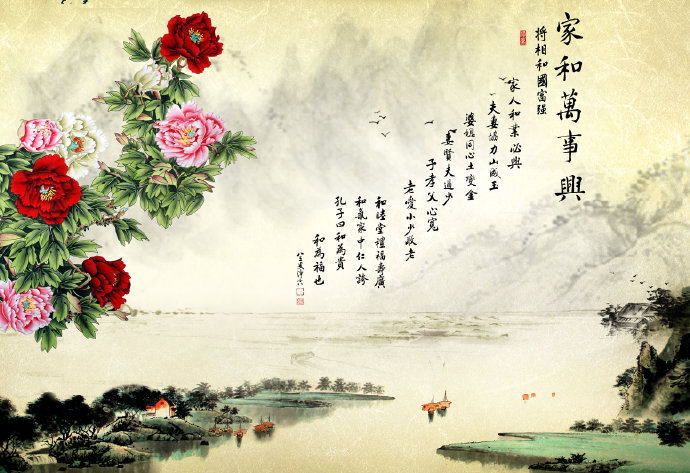 家和萬事興
將相和國富强
家人和業必興
夫妻協力山成玉
婆媳同心土變金
妻賢夫道少
子孝父心寬
老愛小少敬老
和睦堂禮福壽廣
和氣家中仁人誇
孔子曰和為貴
和為福也